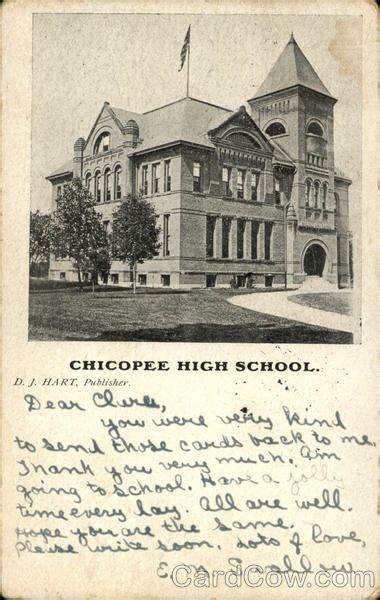 CHICOPEE HIGH SCHOOL.
D. J. HART, Publisher.
Dear Clara,
you were very kind
to send those cards back to me,
Thank you very much. Am
going to school. Have a jolly
time every day. All are well.
Hope you are the same.
Please write soon. Lots of love,
CardCow.com